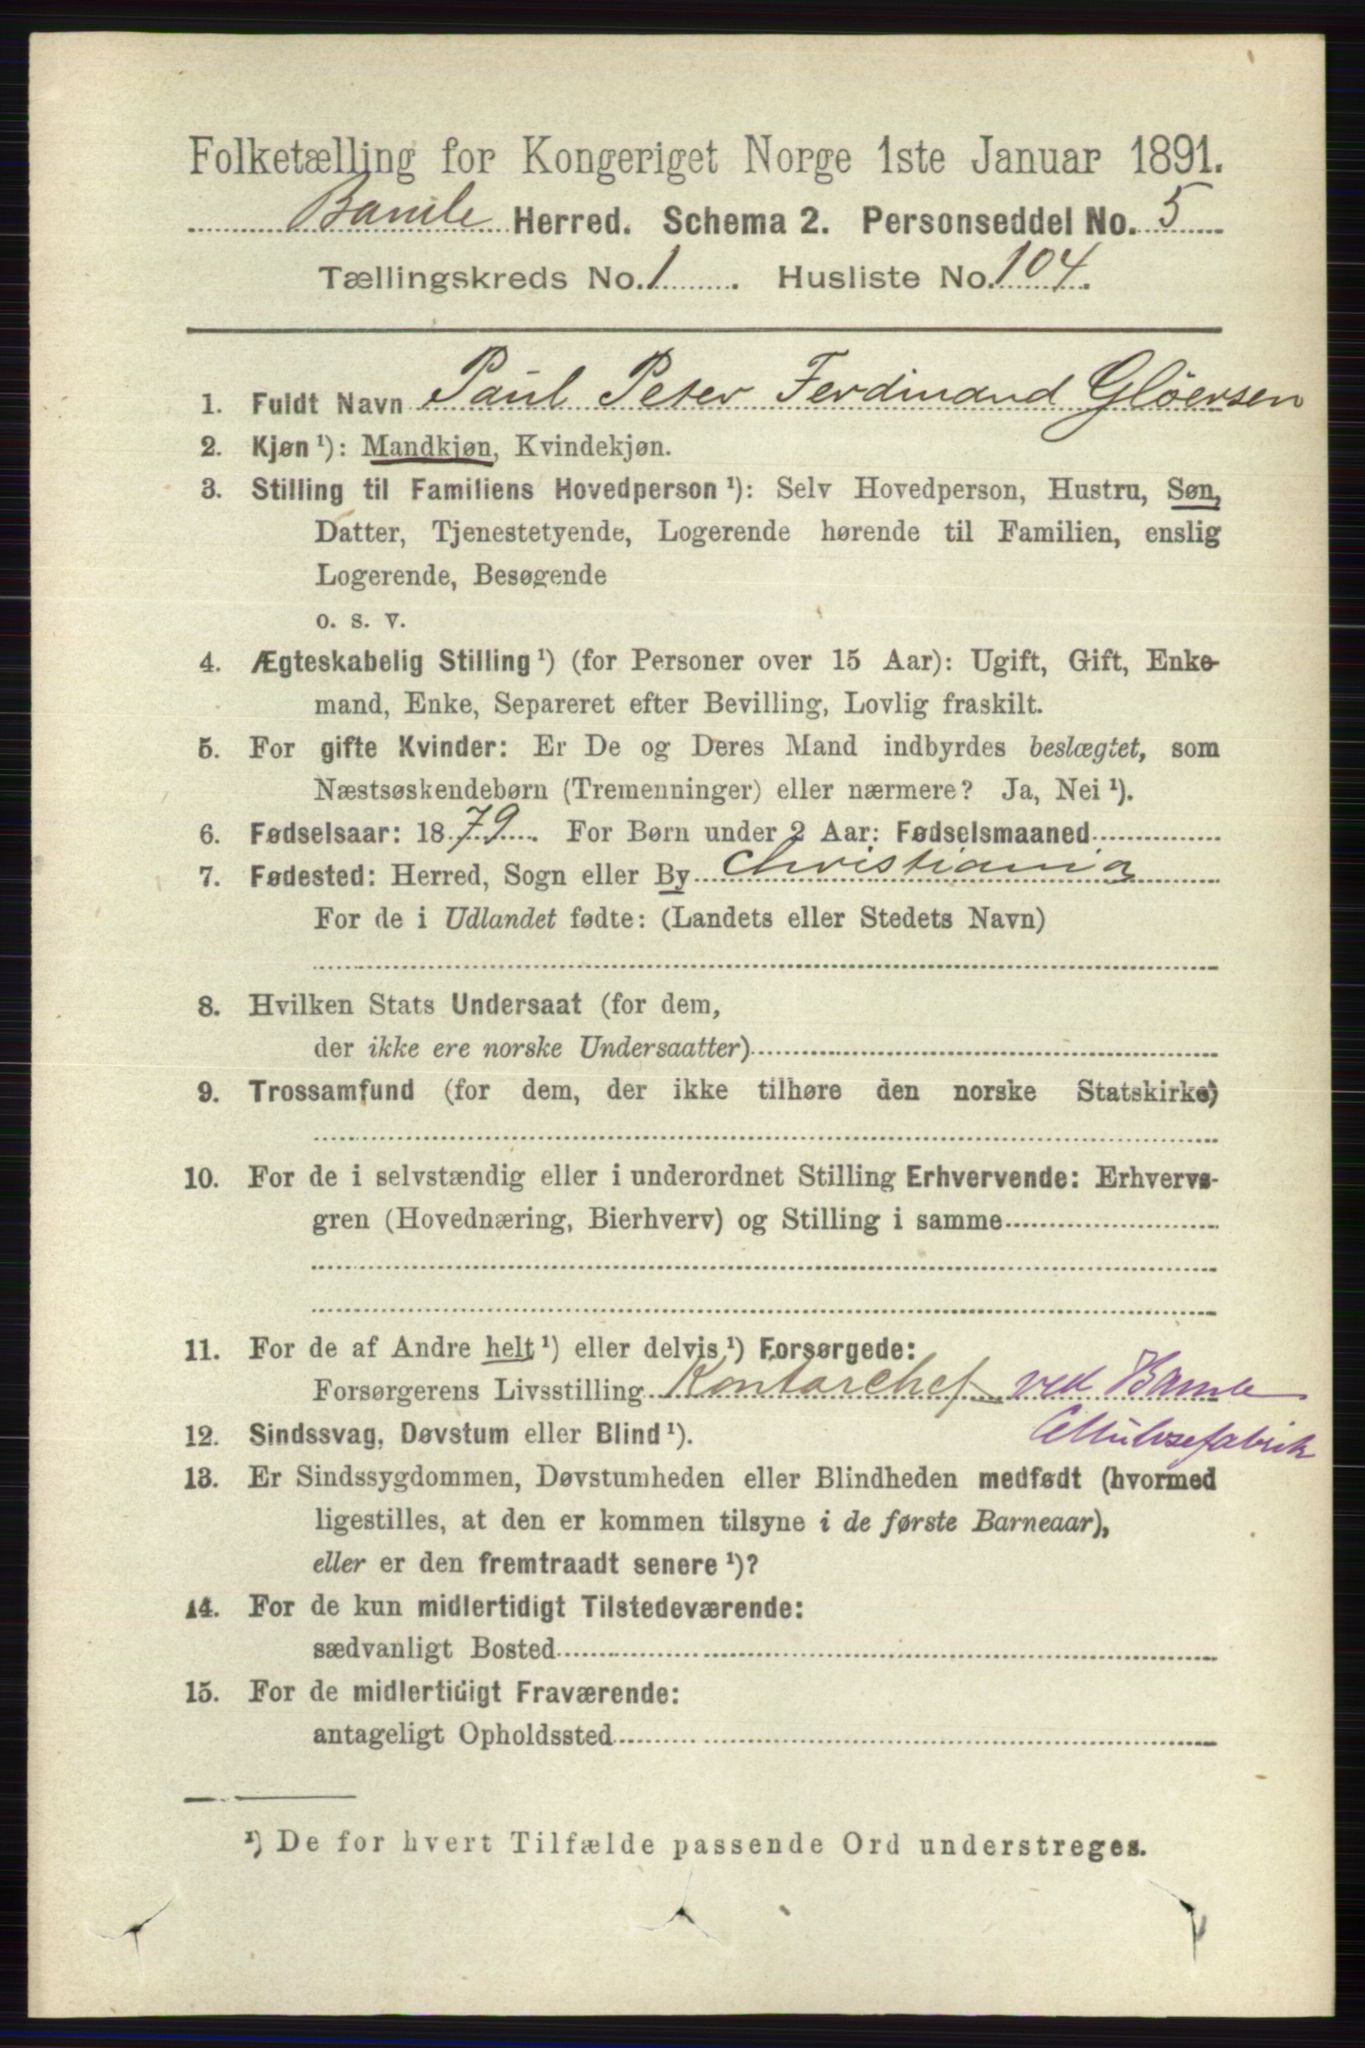 Folketælling for Kongeriget Norge 1ste Januar 1891.
Bamle Herred. Schema 2. Personseddel No. 5
Tællingskreds No. 1. Husliste No. 104.
1. Fuldt Navn Paul Peter Ferdinand Glöersen
2. Kjøn ¹): Mandkjøn, Kvindekjøn.
3. Stilling til Familiens Hovedperson ¹): Selv Hovedperson, Hustru, Søn,
Datter, Tjenestetyende, Logerende hørende til Familien, enslig
Logerende, Besøgende
o. s. v.
4. Ægteskabelig Stilling ¹) (for Personer over 15 Aar): Ugift, Gift, Enke-
mand, Enke, Separeret efter Bevilling, Lovlig fraskilt.
5. For gifte Kvinder: Er De og Deres Mand indbyrdes beslægtet, som
Næstsøskendebørn (Tremenninger) eller nærmere? Ja, Nei ¹).
6. Fødselsaar: 1879. For Børn under 2 Aar: Fødselsmaaned
7. Fødested: Herred, Sogn eller By Christiania
For de i Udlandet fødte: (Landets eller Stedets Navn)
8. Hvilken Stats Undersaat (for dem,
der ikke ere norske Undersaatter)
9. Trossamfund (for dem, der ikke tilhøre den norske Statskirke)
10. For de i selvstændig eller i underordnet Stilling Erhvervende: Erhvervs-
gren (Hovednæring, Bierhverv) og Stilling i samme
11. For de af Andre helt ¹) eller delvis ¹) Forsørgede:
Forsørgerens Livsstilling Kontorchef ved Bamle
Cellulosefabrik
12. Sindssvag, Døvstum eller Blind ¹).
13. Er Sindssygdommen, Døvstumheden eller Blindheden medfødt (hvormed
ligestilles, at den er kommen tilsyne i de første Barneaar),
eller er den fremtraadt senere ¹)?
14. For de kun midlertidigt Tilstedeværende:
sædvanligt Bosted
15. For de midlertidigt Fraværende:
antageligt Opholdssted
¹) De for hvert Tilfælde passende Ord understreges.